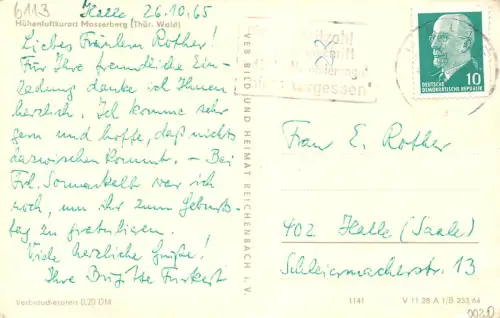 6113
Halle 26.10.65
Höhenluftkurort Masserberg (Thür. Wald)
Liebes Fräulein Rother!
Für Ihre freundliche Ein-
ladung danke ich Ihnen
herzlich. Ich komme sehr
gern und hoffe, daß nichts
dazwischen kommt. – Bei
Frl. war ich
noch, um ihr zum Geburts-
tag zu gratulieren.
Viele herzliche Grüße!
Ihre Furkert
Verbraucherpreis 0,20 DM
VEB BILD UND HEIMAT REICHENBACH i. V.
vergessen
DEUTSCHE
DEMOKRATISCHE REPUBLIK
10
Frau E. Rother
402 Halle (Saale)
Schleiermacherstr. 13
1141
V 11 28 A 1/B 253/64
0020